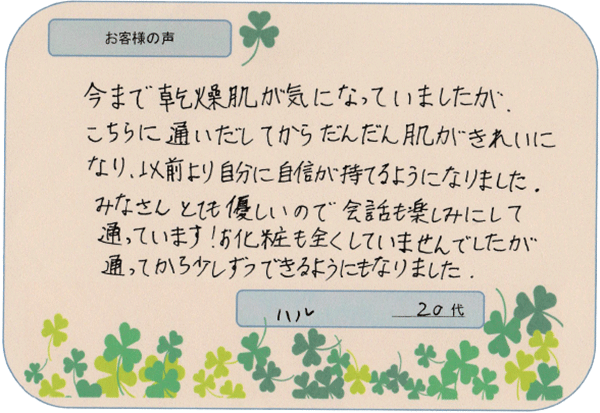 お客様の声
今まで乾燥肌が気になっていましたが、
こちらに通いだしてからだんだん肌がきれいに
なり、以前より自分に自信が持てるようになりました。
みなさんとても優しいので会話も楽しみにして
通っています!お化粧も全くしていませんでしたが
通ってから少しずつできるようにもなりました。
ハル 20代